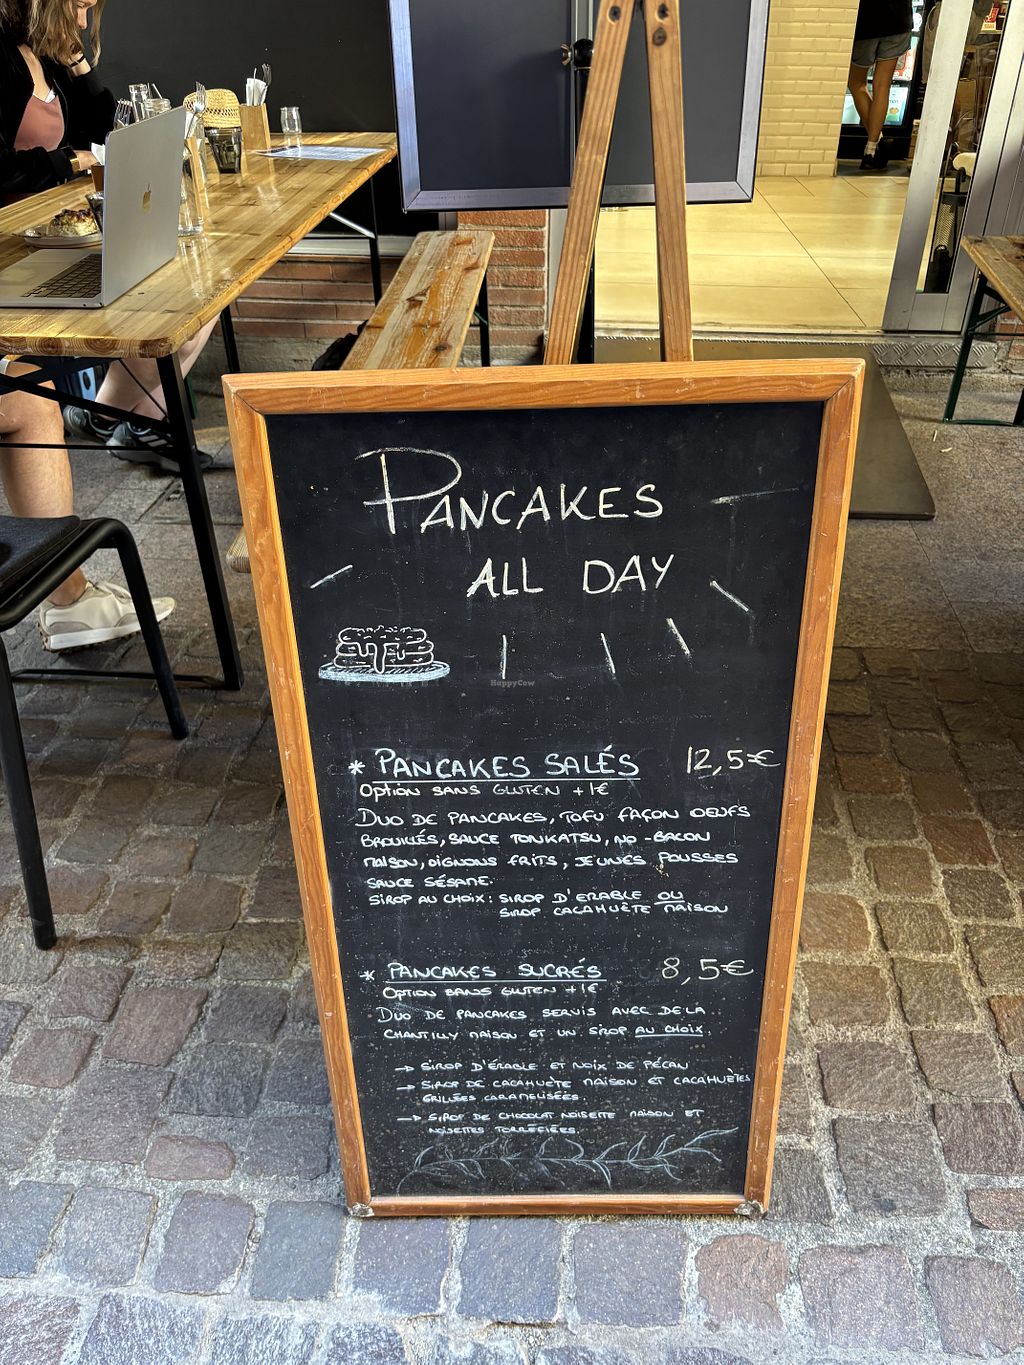 PANCAKES
ALL DAY
HappyCow
* PANCAKES SALÉS 12,5€
OPTION SANS GLUTEN +1€
DUO DE PANCAKES, TOFU FAÇON OEUFS
BROUILLÉS, SAUCE TONKATSU, NO-BACON
MAISON, OIGNONS FRITS, JEUNES POUSSES
SAUCE SÉSAME.
SIROP AU CHOIX: SIROP D'ERABLE OU
SIROP CACAHUÈTE MAISON
* PANCAKES SUCRÉS 8,5€
OPTION SANS GLUTEN +1€
DUO DE PANCAKES SERVIS AVEC DE LA
CHANTILLY MAISON ET UN SIROP AU CHOIX
→ SIROP D'ÉRABLE ET NOIX DE PÉCAN
→ SIROP DE CACAHUÈTE MAISON ET CACAHUÈTES
GRILLÉES CARAMELISÉES
→ SIROP DE CHOCOLAT NOISETTE MAISON ET
NOISETTES TORRÉFIÉES.